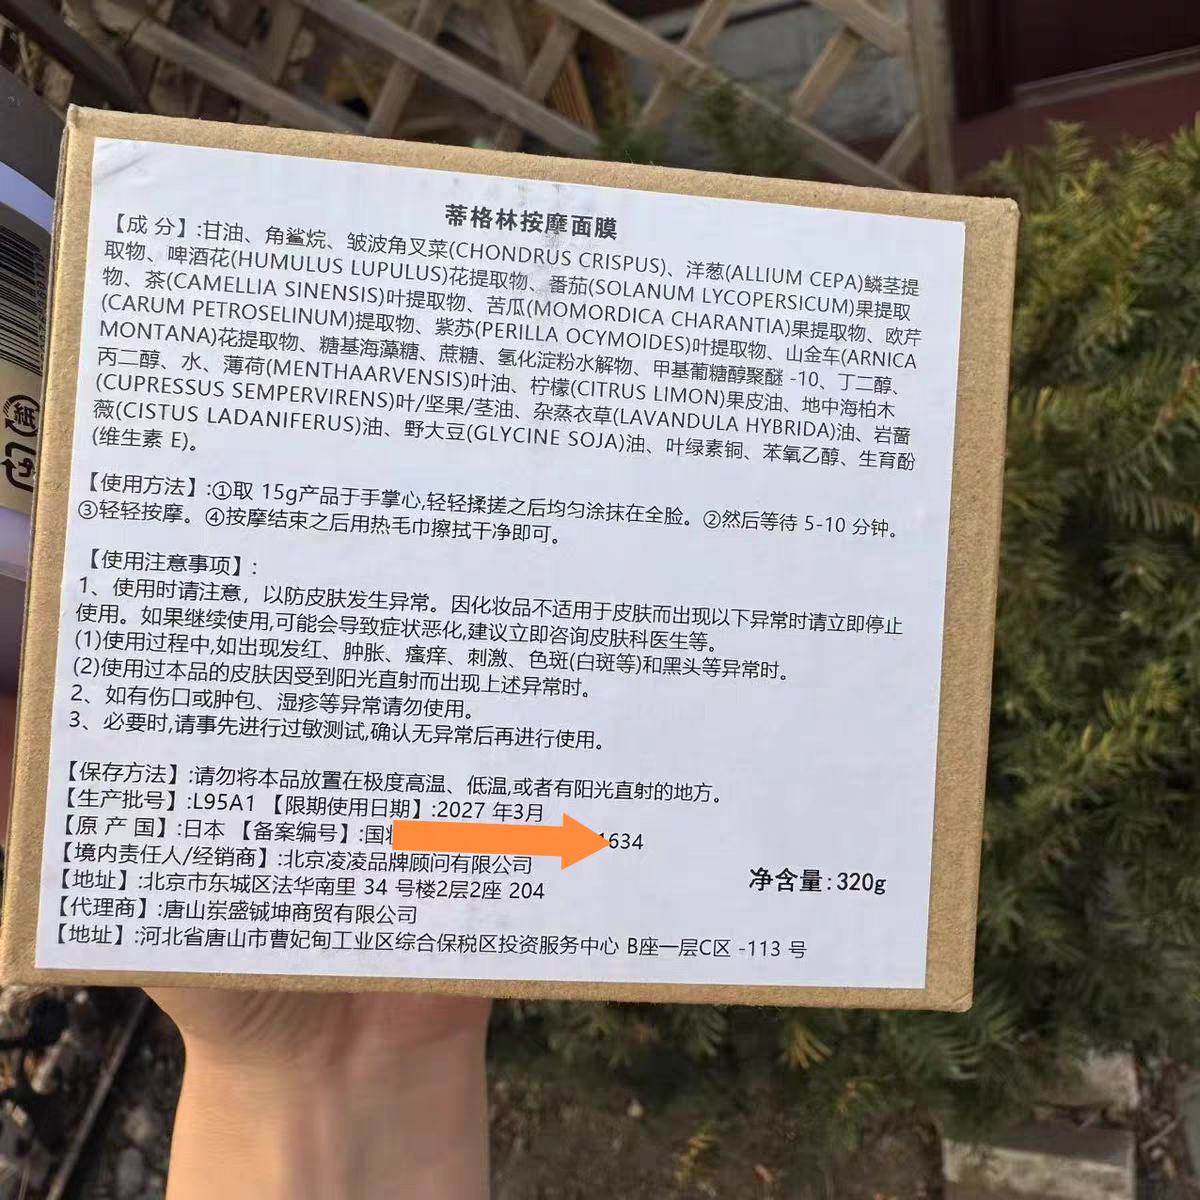 蒂格林按摩面膜
【成 分】:甘油、角鲨烷、皱波角叉菜(CHONDRUS CRISPUS)、洋葱(ALLIUM CEPA)鳞茎提
取物、啤酒花(HUMULUS LUPULUS)花提取物、番茄(SOLANUM LYCOPERSICUM)果提取
物、茶(CAMELLIA SINENSIS)叶提取物、苦瓜(MOMORDICA CHARANTIA)果提取物、欧芹
(CARUM PETROSELINUM)提取物、紫苏(PERILLA OCYMOIDES)叶提取物、山金车(ARNICA
MONTANA)花提取物、糖基海藻糖、蔗糖、氢化淀粉水解物、甲基葡糖醇聚醚 -10、丁二醇、
丙二醇、水、薄荷(MENTHAARVENSIS)叶油、柠檬(CITRUS LIMON)果皮油、地中海柏木
(CUPRESSUS SEMPERVIRENS)叶/坚果/茎油、杂蒸衣草(LAVANDULA HYBRIDA)油、岩蔷
薇(CISTUS LADANIFERUS)油、野大豆(GLYCINE SOJA)油、叶绿素铜、苯氧乙醇、生育酚
(维生素 E)。
【使用方法】:①取 15g产品于手掌心,轻轻揉搓之后均匀涂抹在全脸。②然后等待 5-10 分钟。
③轻轻按摩。④按摩结束之后用热毛巾擦拭干净即可。
【使用注意事项】:
1、使用时请注意，以防皮肤发生异常。因化妆品不适用于皮肤而出现以下异常时请立即停止
使用。如果继续使用,可能会导致症状恶化,建议立即咨询皮肤科医生等。
(1)使用过程中,如出现发红、肿胀、瘙痒、刺激、色斑(白斑等)和黑头等异常时。
(2)使用过本品的皮肤因受到阳光直射而出现上述异常时。
2、如有伤口或肿包、湿疹等异常请勿使用。
3、必要时,请事先进行过敏测试,确认无异常后再进行使用。
【保存方法】:请勿将本品放置在极度高温、低温,或者有阳光直射的地方。
【生产批号】:L95A1 【限期使用日期】:2027 年3月
【原 产 国】:日本 【备案编号】:国 1634
【境内责任人/经销商】:北京凌凌品牌顾问有限公司
【地址】:北京市东城区法华南里 34 号楼2层2座 204
净含量:320g
【代理商】:唐山岽盛铖坤商贸有限公司
【地址】:河北省唐山市曹妃甸工业区综合保税区投资服务中心 B座一层C区 -113 号
紙